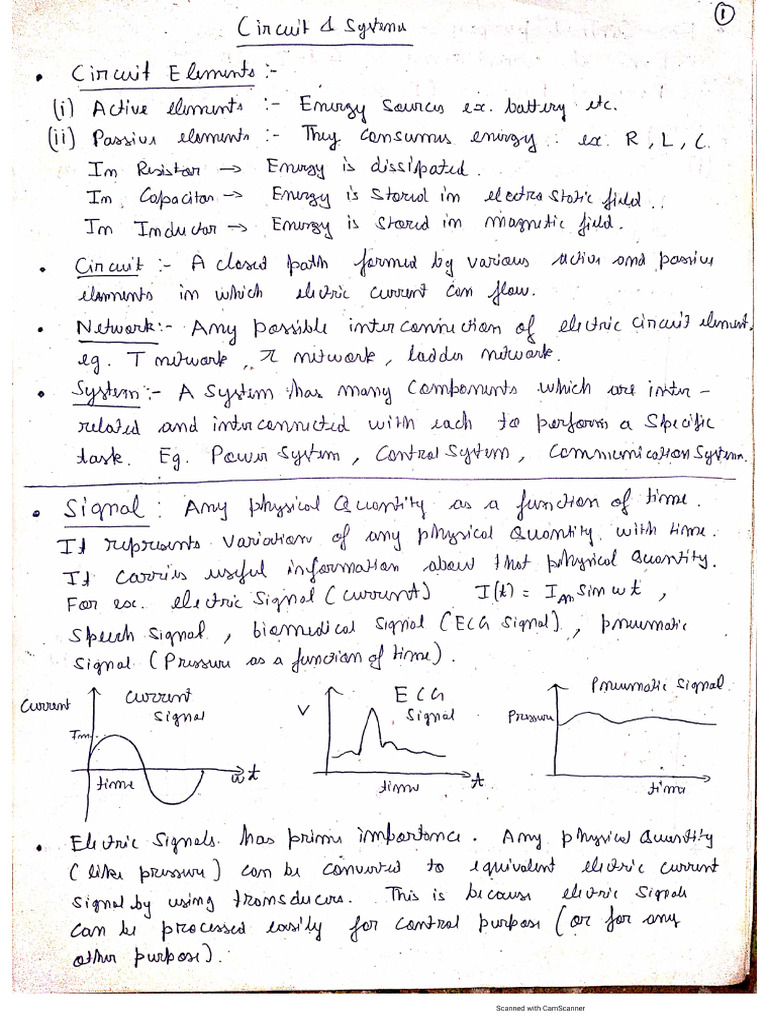 1
Circuit & Systems
• Circuit Elements :-
(i) Active elements :- Energy Sources ex. battery etc.
(ii) Passive elements :- They consumes energy : ex. R, L, C.
In Resistor → Energy is dissipated.
In Capacitor → Energy is stored in electro static field.
In Inductor → Energy is stored in magnetic field.
• Circuit :- A closed path formed by various active and passive
elements in which electric current can flow.
• Network :- Any possible interconnection of electric circuit element,
eg. T network, π network, ladder network.
• System :- A System has many components which are inter-
related and interconnected with each to perform a specific
task. Eg. Power System, Control System, Communication System.
• Signal : Any physical Quantity as a function of time.
It represents variation of any physical Quantity with time.
It carries useful information about that physical Quantity.
For ex. electric Signal (current) I(t) = Im Sin wt,
Speech Signal, biomedical Signal (ECG Signal), pneumatic
Signal (Pressure as a function of time).
Current Current Signal Im time wt
V ECG Signal time t
Pressure Pneumatic Signal time
• Electric Signals has prime importance. Any physical Quantity
(like pressure) can be converted to equivalent electric current
signal by using transducers. This is because electric Signals
can be processed easily for control purpose (or for any
other purpose).
Scanned with CamScanner